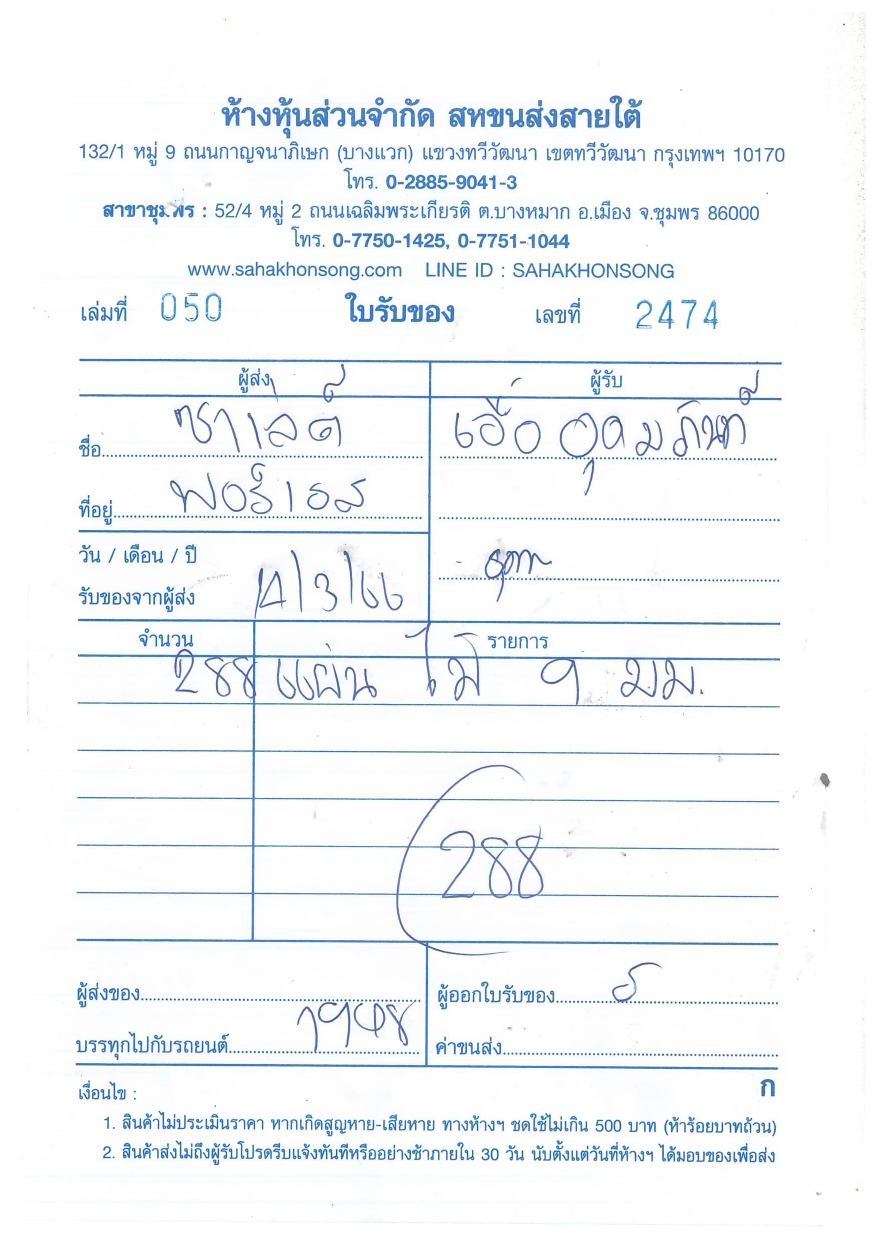 ห้างหุ้นส่วนจำกัด สหขนส่งสายใต้
132/1 หมู่ 9 ถนนกาญจนาภิเษก (บางแวก) แขวงทวีวัฒนา เขตทวีวัฒนา กรุงเทพฯ 10170
โทร. 0-2885-9041-3
สาขาชุมพร : 52/4 หมู่ 2 ถนนเฉลิมพระเกียรติ ต.บางหมาก อ.เมือง จ.ชุมพร 86000
โทร. 0-7750-1425, 0-7751-1044
www.sahakhonsong.com LINE ID : SAHAKHONSONG
เล่มที่ 050 ใบรับของ เลขที่ 2474
ผู้ส่ง ผู้รับ
ชื่อ เอื้ออุดมภัณฑ์
ที่อยู่
วัน / เดือน / ปี
รับของจากผู้ส่ง 14/3/66
จำนวน รายการ
288 แผ่น ไม้ 9 มม.
288
ผู้ส่งของ ผู้ออกใบรับของ
บรรทุกไปกับรถยนต์ ค่าขนส่ง
ก
เงื่อนไข :
1. สินค้าไม่ประเมินราคา หากเกิดสูญหาย-เสียหาย ทางห้างฯ ชดใช้ไม่เกิน 500 บาท (ห้าร้อยบาทถ้วน)
2. สินค้าส่งไม่ถึงผู้รับโปรดรีบแจ้งทันทีหรืออย่างช้าภายใน 30 วัน นับตั้งแต่วันที่ห้างฯ ได้มอบของเพื่อส่ง